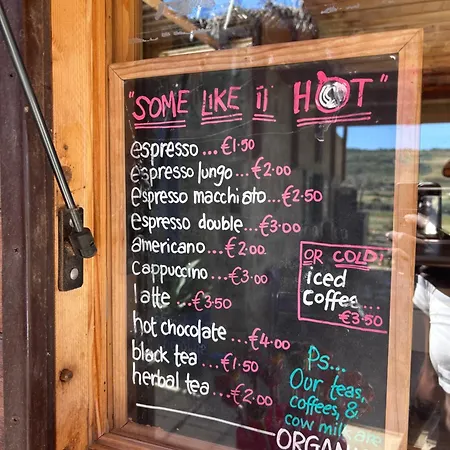 "SOME LIKE il HOT"
espresso ... €1.50
espresso lungo ... €2.00
espresso macchiato ... €2.50
espresso double ... €3.00
americano ... €2.00
cappuccino ... €3.00
latte ... €3.50
hot chocolate ... €4.00
black tea ... €1.50
herbal tea ... €2.00
OR COLD!
iced
coffee ...
€3.50
Ps...
Our teas,
coffees, &
cow milk are